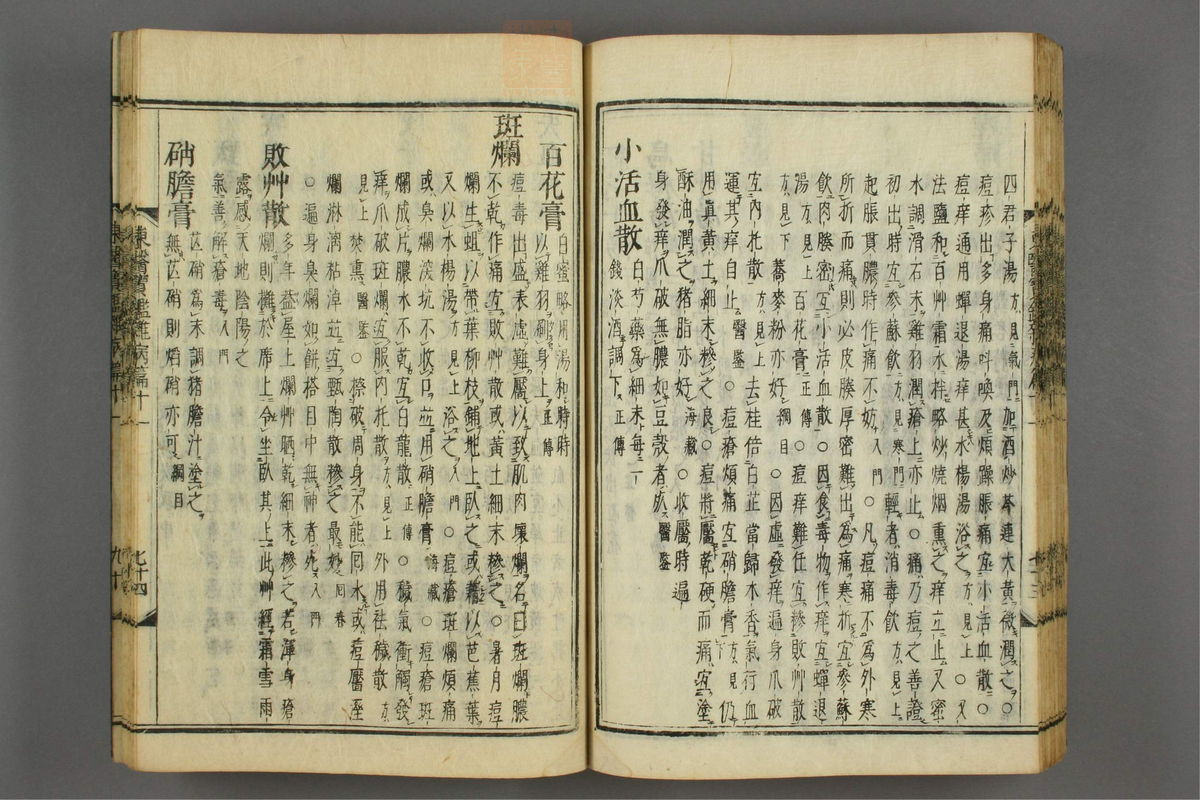 四君子湯方見氣門加酒炒芩連大黃微潤之○
痘疹出多身痛叫喚及煩躁脹痛宜小活血散○
痘痒通用蟬退湯痒甚水楊湯浴之方見上○又
法鹽和百艸霜水拌略炒燒烟熏之痒立止又蜜
水調滑石末雞羽潤瘡上亦止○痛乃痘之善證
初出時宜參蘇飲方見寒門輕者消毒飲方見上
起脹貫膿時作痛不妨入門○凡痘痛不爲外寒
所折而痛則必皮膜厚密難出爲痛寒折宜參蘇
飲肉膜密宜小活血散○因食毒物作痒宜蟬退
湯方見上百花膏正傳○痘痒難任宜摻敗艸散
方見下蕎麥粉亦好綱目○因虛發痒遍身爪破
宜內托散方見上去桂倍白芷當歸木香氣行血
運其痒自止醫鑒○痘瘡煩痛宜硝膽膏方見下仍
用眞黃土細末摻之良○痘將靨乾硬而痛宜塗
酥油潤之猪脂亦好海藏○收靨時遍
身發痒爪破無膿如豆殼者吹醫鑒
小活血散 白芍藥爲細末每一
錢淡酒調下正傳
百花膏 白蜜略用湯和時時
以雞羽刷身上正傳
斑爛 痘毒出盛表虛難靨以致肌肉壞爛名曰斑爛膿
不乾作痛宜敗艸散或黃土細末摻之○暑月痘
爛生蛆以帶葉柳枝鋪地上臥之或襯以芭蕉葉
又以水楊湯方見上浴之入門○痘瘡斑爛煩痛
或臭爛深坑不收口並用硝膽膏海藏○痘瘡斑
爛成片膿水不乾宜白龍散正傳○穢氣衝觸發
痒爪破斑爛宜服內托散方見上外用祛穢散方
見上焚熏醫鑒○擦破周身不能回水或痘靨至
爛淋漓粘淖並宜甄陶散摻之最妙回春
○遍身臭爛如餠搭目中無神者死入門
敗艸散 多年蓋屋上爛艸晒乾細末摻之若渾身瘡
爛則攤於席上令坐臥其上此艸經霜雪雨
露感天地陰陽之
氣善解瘡毒入門
硝膽膏 芒硝爲末調猪膽汁塗之
無芒硝則焰硝亦可綱目
東醫寶鑑雜病篇十一
七十四